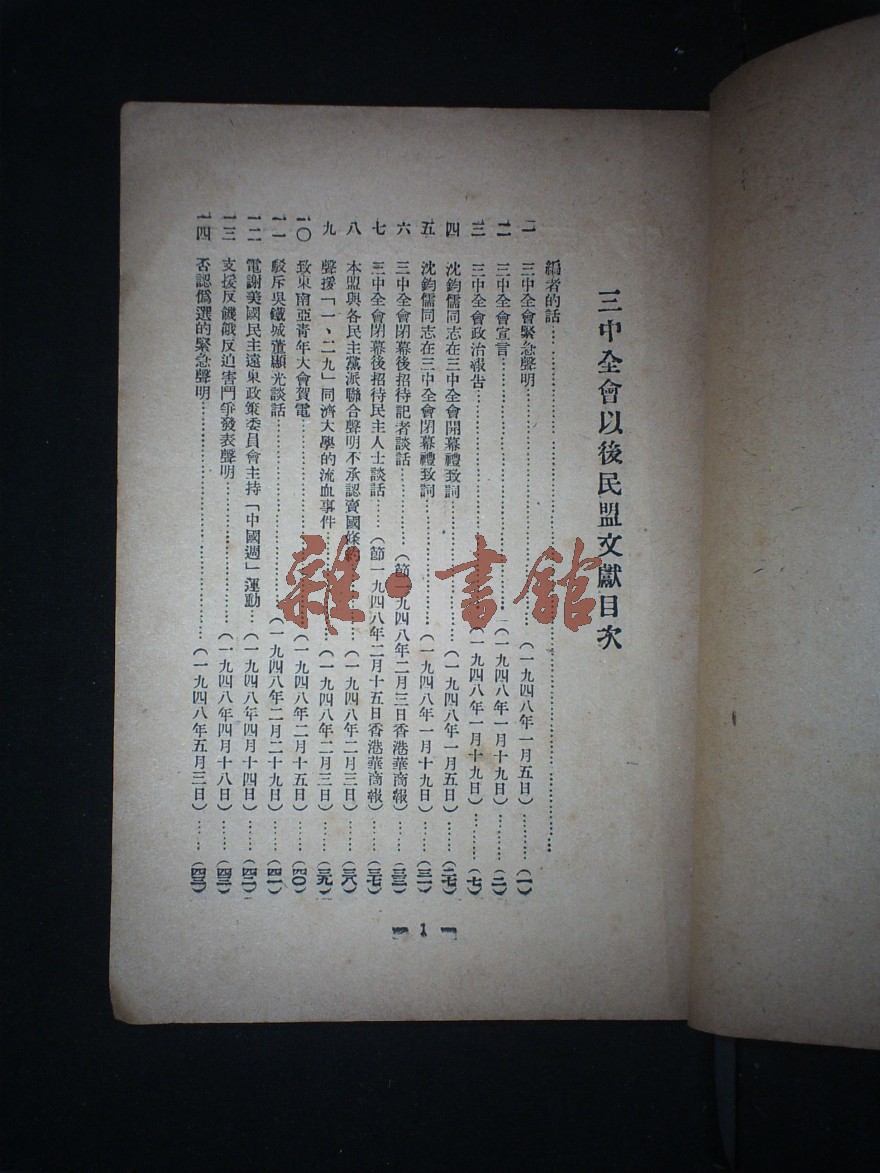 三中全會以後民盟文獻目次
編者的話
一 三中全會緊急聲明（一九四八年一月五日）（一）
二 三中全會宣言（一九四八年一月十九日）（二）
三 三中全會政治報告（一九四八年一月十九日）（七）
四 沈鈞儒同志在三中全會開幕禮致詞（一九四八年一月五日）（二七）
五 沈鈞儒同志在三中全會閉幕禮致詞（一九四八年一月十九日）（三一）
六 三中全會閉幕後招待記者談話（節一九四八年二月三日香港華商報）
七 三中全會閉幕後招待民主人士談話（節一九四八年二月十五日香港華商報）（三七）
八 本盟與各民主黨派聯合聲明不承認賣國條約（一九四八年二月三日）（三八）
九 聲援「一、二九」同濟大學的流血事件（一九四八年二月三日）（三九）
一〇 致東南亞青年大會賀電（一九四八年二月十五日）（四〇）
一一 駁斥吳鐵城董顯光談話（一九四八年二月二十九日）（四一）
一二 電謝美國民主遠東政策委員會主持「中國週」運動（一九四八年四月十四日）（四二）
一三 支援反饑餓反迫害鬥爭發表聲明（一九四八年四月十八日）
一四 否認僞選的緊急聲明（一九四八年五月三日）（四三）
1
雜·書館